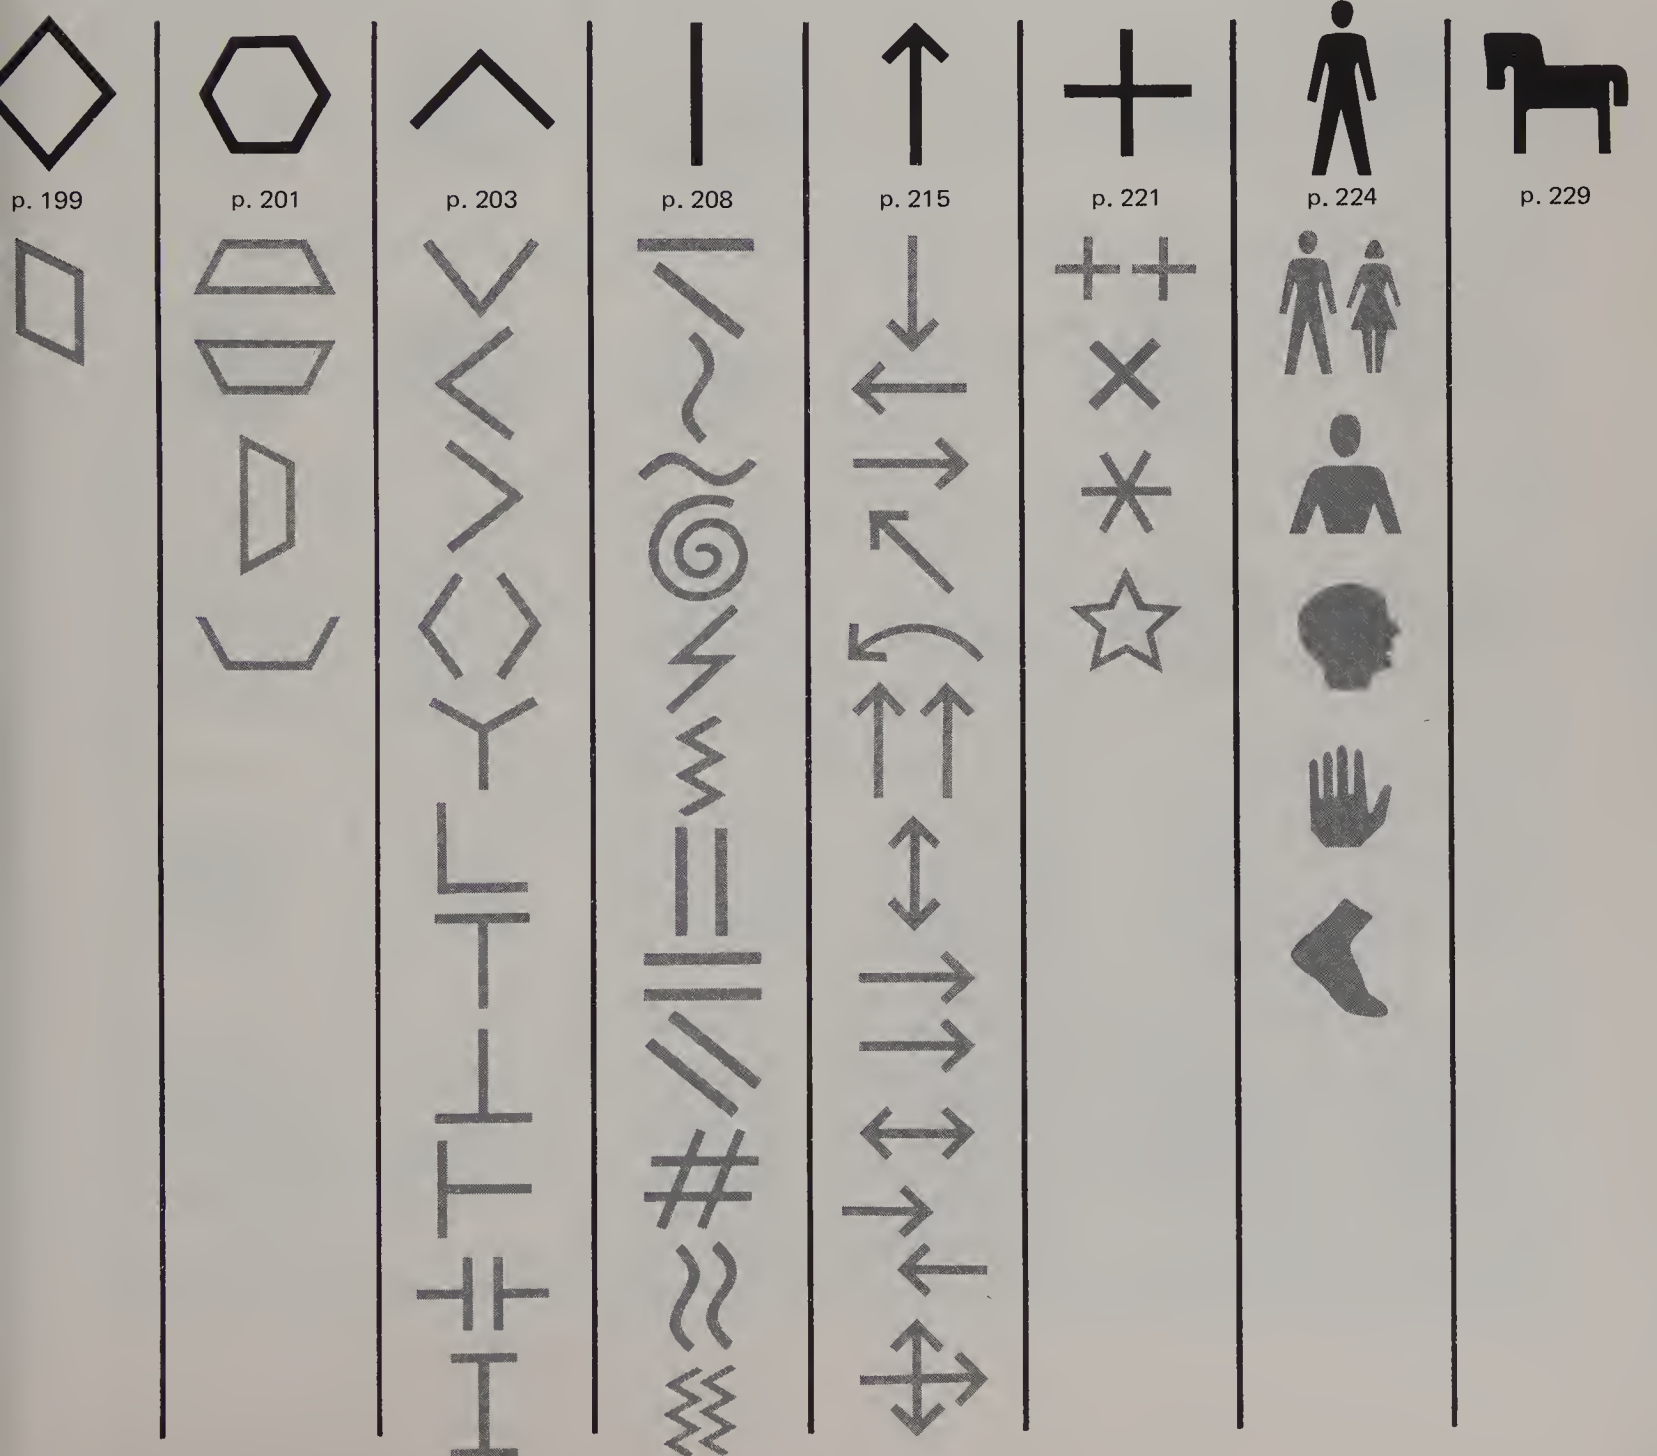 p. 199
p. 201
p. 203
p. 208
p. 215
p. 221
p. 224
p. 229